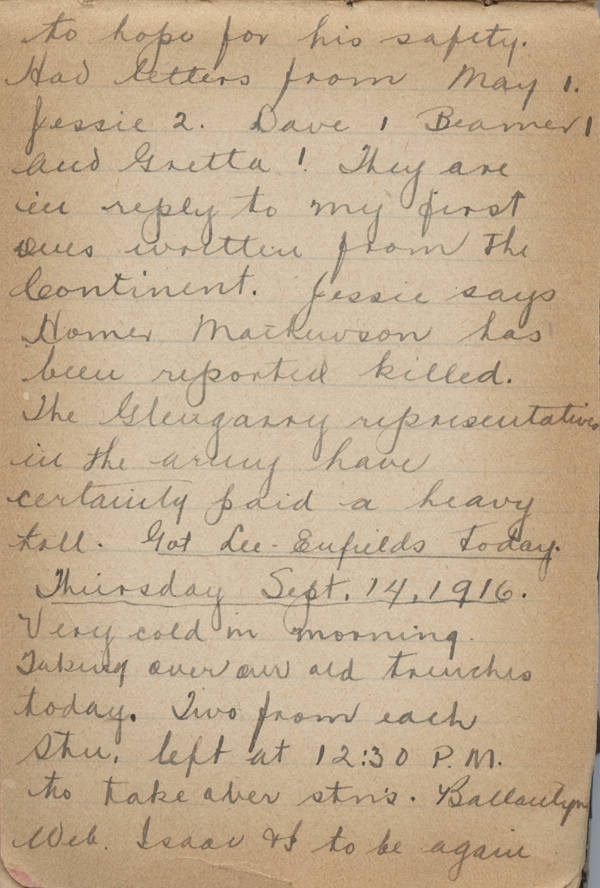 to hope for his safety.
Had letters from May 1.
Jessie 2. Dave 1 Beamer 1
and Gretta 1. They are
in reply to my first
ones written from the
Continent. Jessie says
Homer Mathewson has
been reported killed.
The Glengarry representatives
in the army have
certainly paid a heavy
toll. Got Lee-Enfields today.
Thursday Sept. 14, 1916.
Very cold in morning.
Taking over our old trenches
today. Two from each
Stn. left at 12:30 P.M.
to take over stns. Ballantyne
Web. Isaac & I to be again